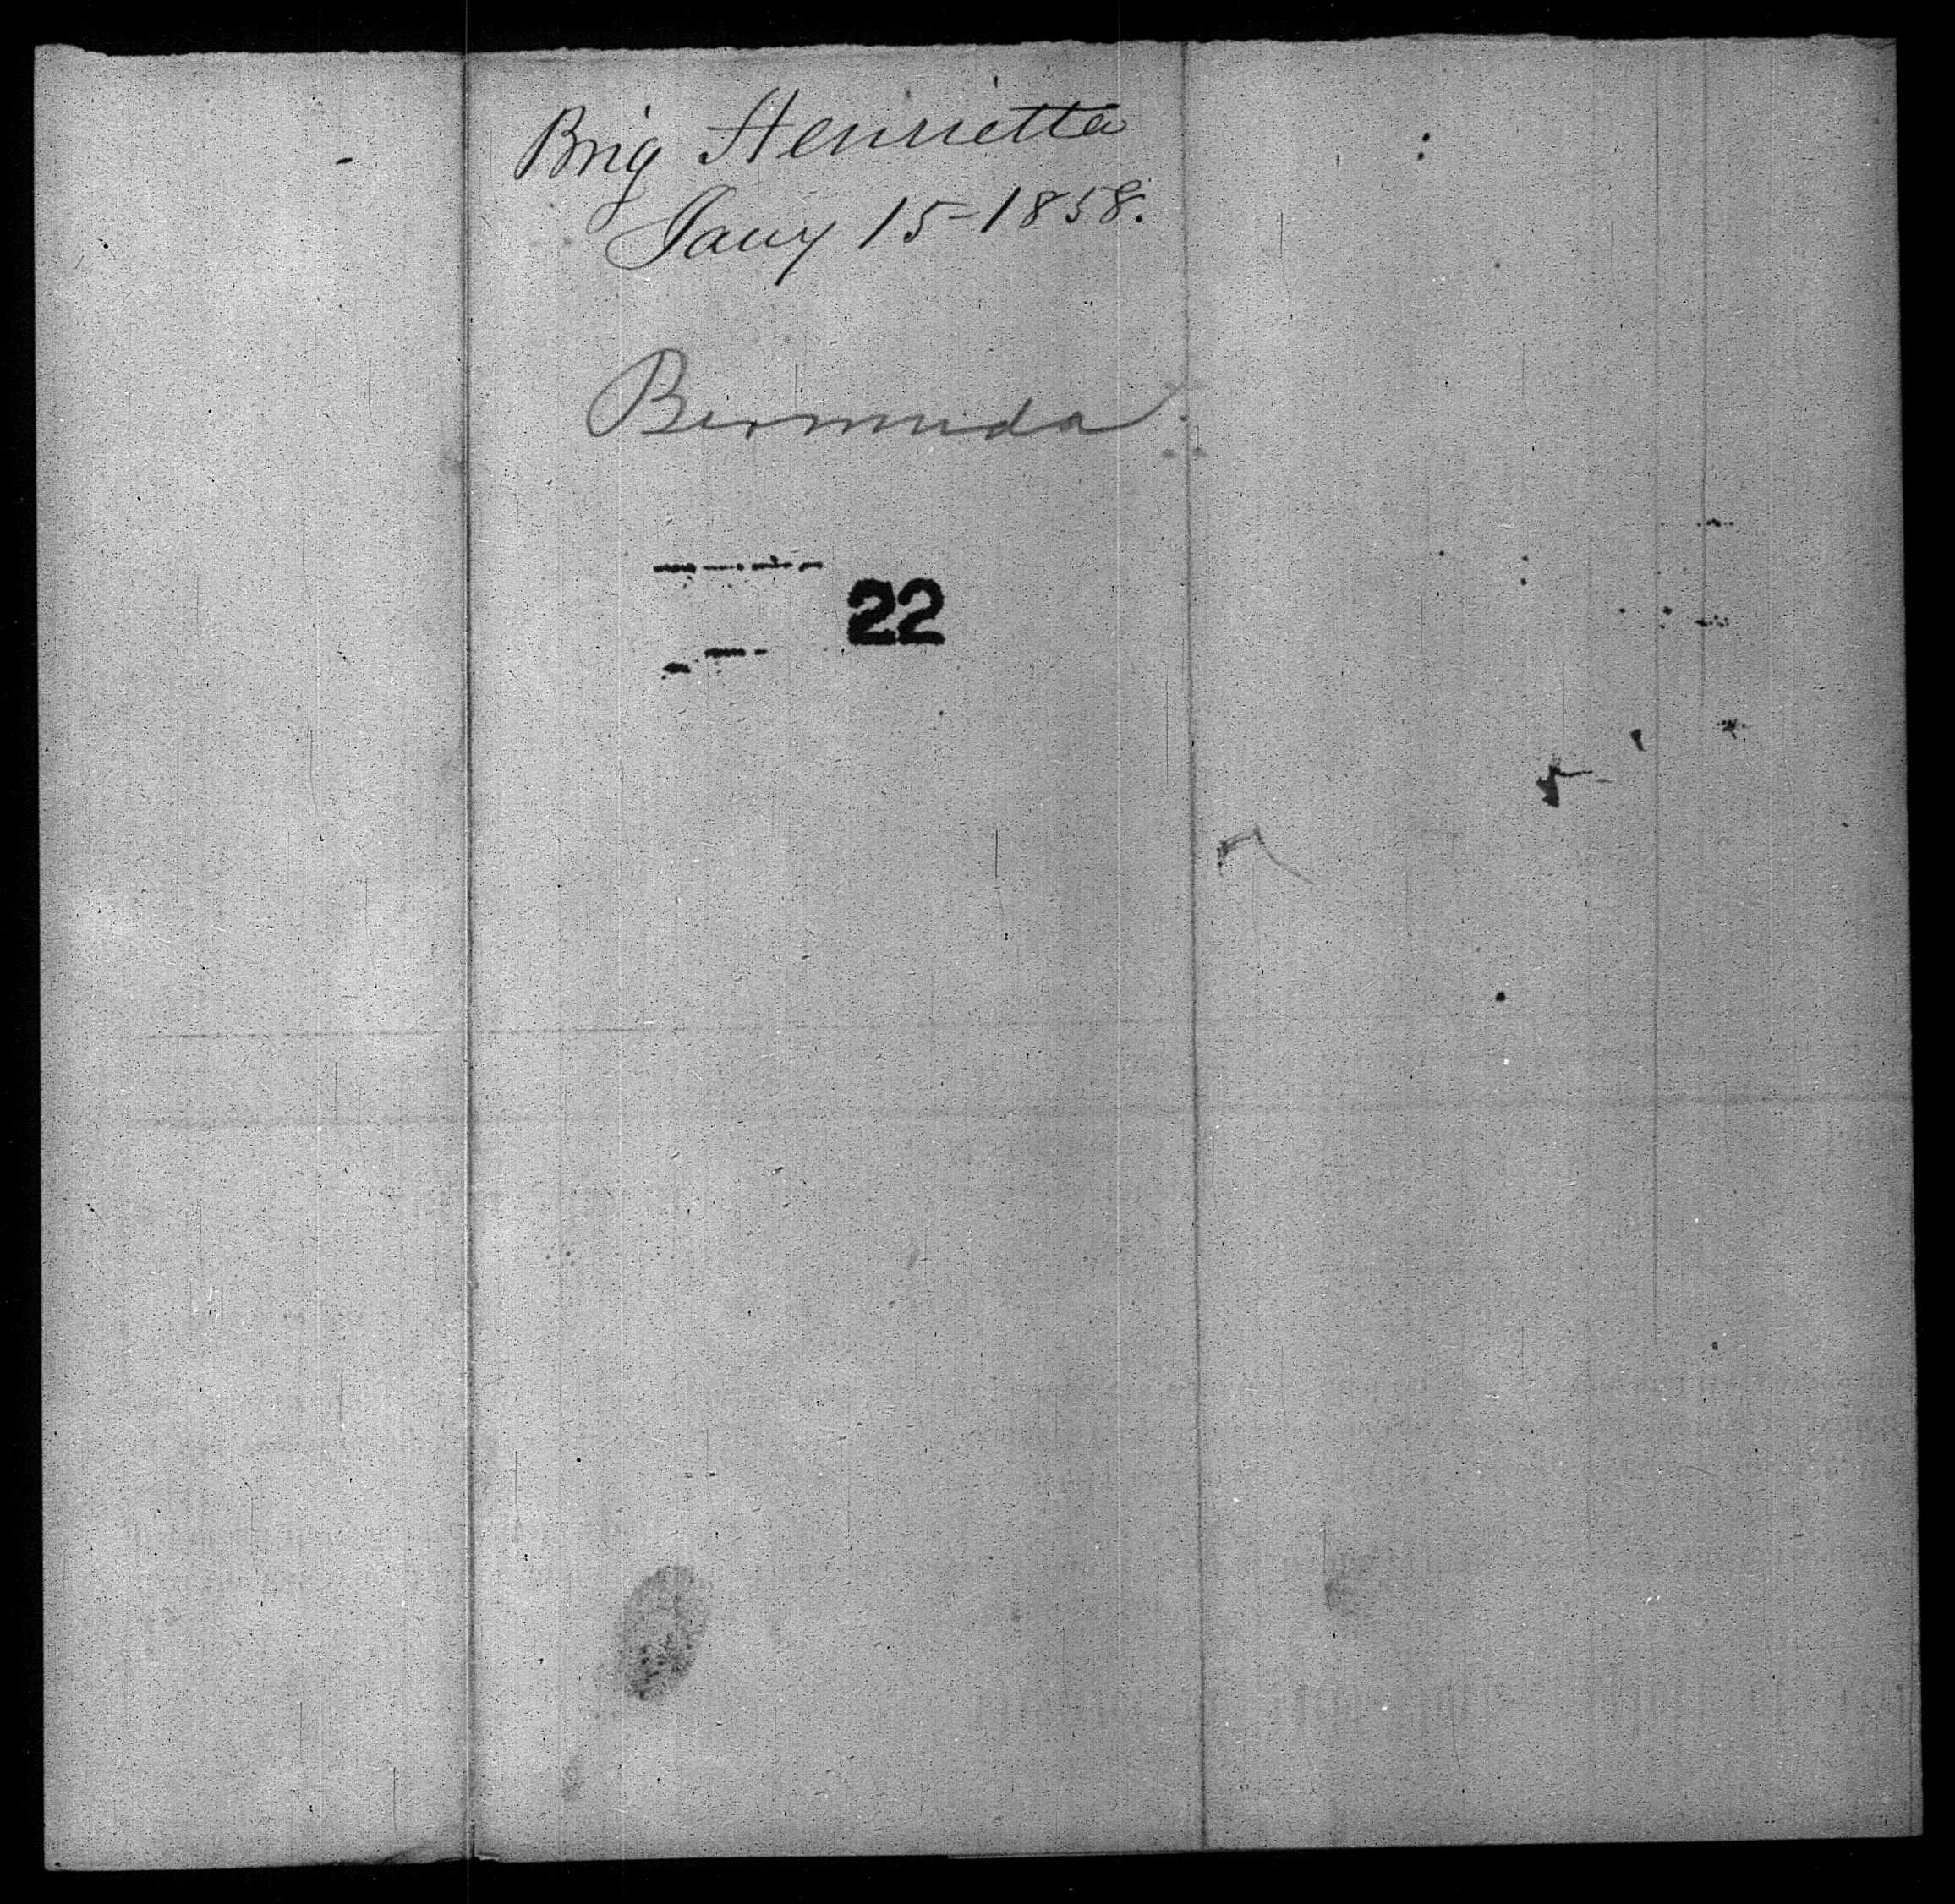 Brig Henrietta
Jany 15-1858.
Bermuda
22